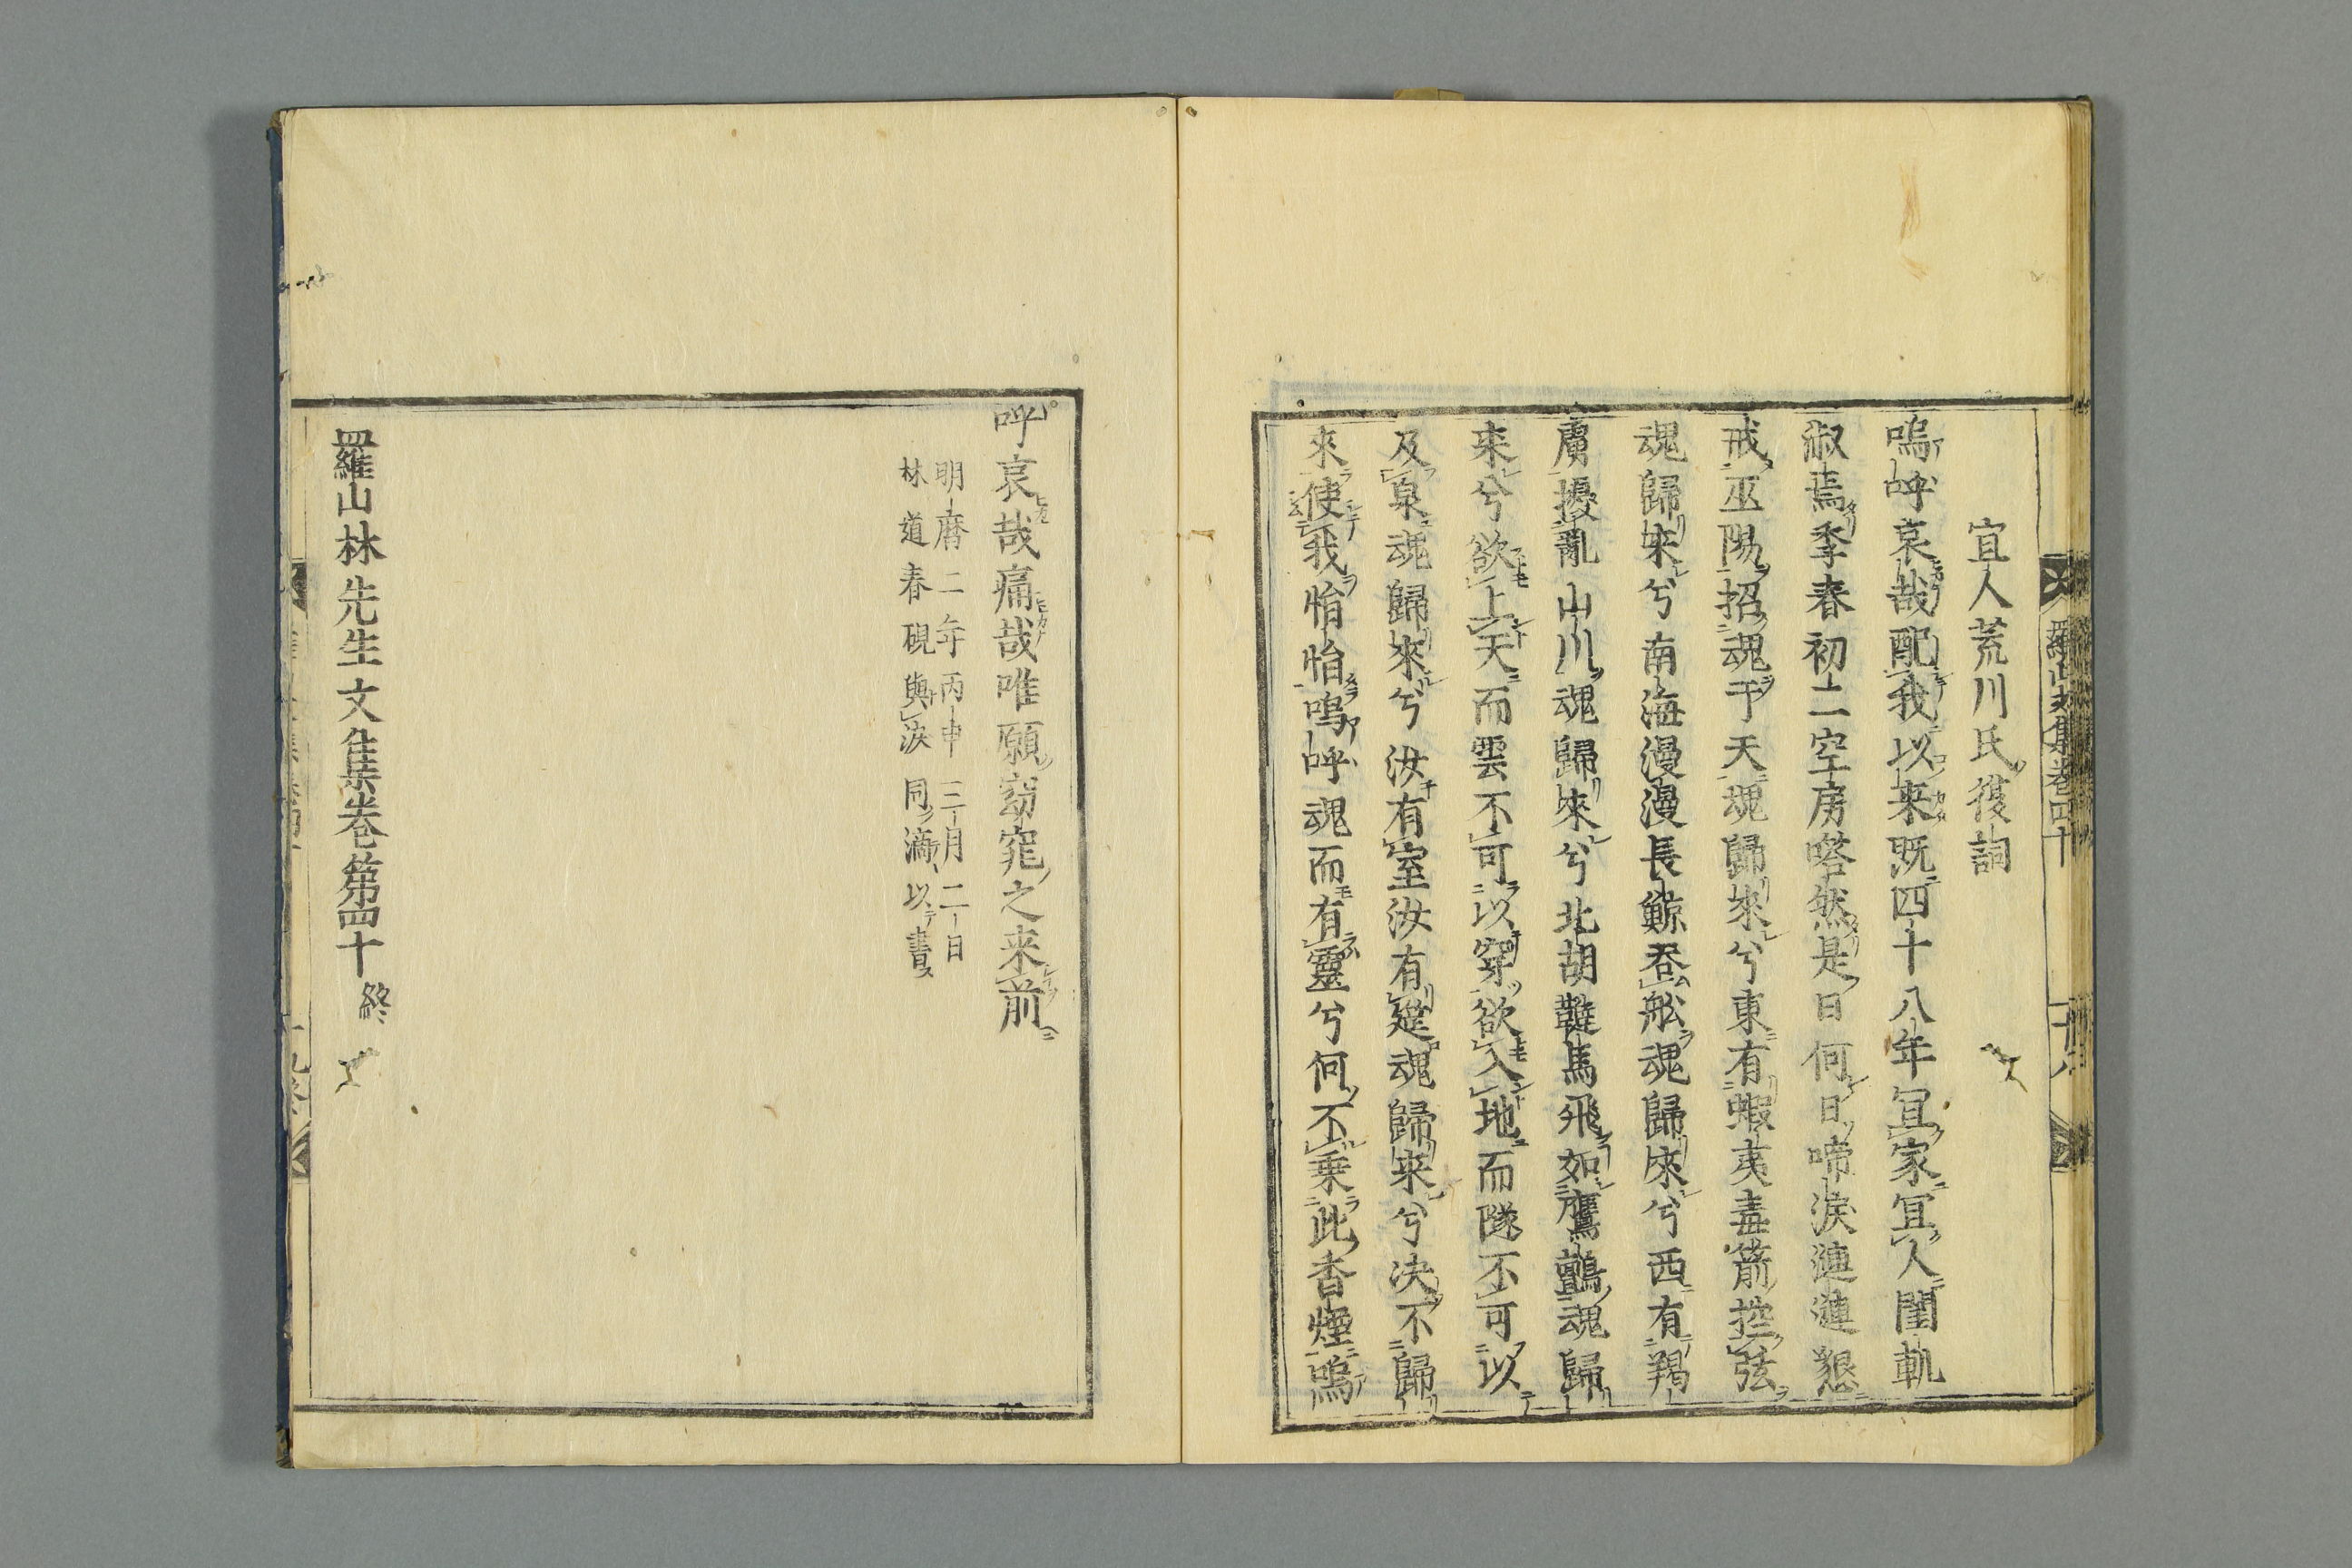 宜人荒川氏復詞
嗚呼哀哉配我以来既四十八年宜家宜人閨軌
淑焉季春初二空房嗒然是日何日啼淚漣漣懇
戒巫陽招魂于天魂歸來兮東有蝦夷毒箭控弦
魂歸來兮南海漫漫長鯨吞舩魂歸來兮西有羯
虜擾亂山川魂歸來兮北胡韃馬飛如鷹鸇魂歸
来兮欲上天而雲不可以穿欲入地而隧不可以
及泉魂歸來兮汝有室汝有筵魂歸来兮决不歸
來使我悁悁嗚呼魂而有靈兮何不乗此香煙嗚
呼哀哉痛哉唯願窈窕之来前
明暦二年丙申三月二日
林道春硯與淚同滴以書
羅山林先生文集卷第四十終
羅山文集卷四十
十八